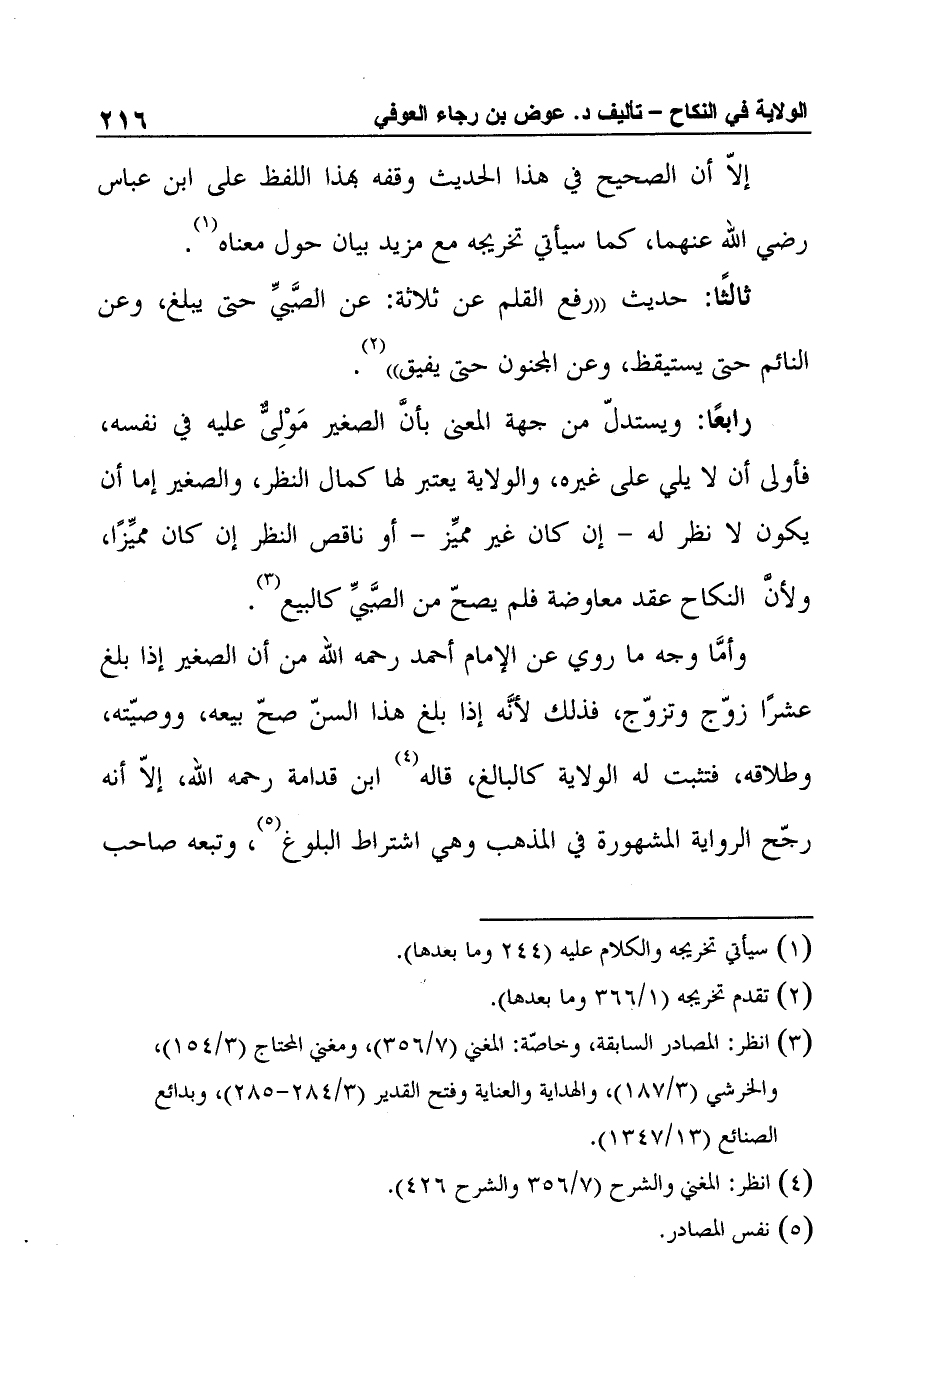 الولاية في النكاح – تأليف د. عوض بن رجاء العوفي ٢١٦
إلاّ أن الصحيح في هذا الحديث وقفه بهذا اللفظ على ابن عباس
رضي الله عنهما، كما سيأتي تخريجه مع مزيد بيان حول معناه(١).
ثالثًا: حديث ((رفع القلم عن ثلاثة: عن الصَّبيِّ حتى يبلغ، وعن
النائم حتى يستيقظ، وعن المجنون حتى يفيق))(٢).
رابعًا: ويستدلّ من جهة المعنى بأنَّ الصغير مَوْلِيٌّ عليه في نفسه،
فأولى أن لا يلي على غيره، والولاية يعتبر لها كمال النظر، والصغير إما أن
يكون لا نظر له – إن كان غير مميِّز – أو ناقص النظر إن كان مميِّزًا،
ولأنَّ النكاح عقد معاوضة فلم يصحّ من الصَّبيِّ كالبيع(٣).
وأمَّا وجه ما روي عن الإمام أحمد رحمه الله من أن الصغير إذا بلغ
عشرًا زوّج وتزوّج، فذلك لأنَّه إذا بلغ هذا السنّ صحّ بيعه، ووصيّته،
وطلاقه، فتثبت له الولاية كالبالغ، قاله(٤) ابن قدامة رحمه الله، إلاّ أنه
رجّح الرواية المشهورة في المذهب وهي اشتراط البلوغ(٥)، وتبعه صاحب
(١) سيأتي تخريجه والكلام عليه (٢٤٤ وما بعدها).
(٢) تقدم تخريجه (٣٦٦/١ وما بعدها).
(٣) انظر: المصادر السابقة، وخاصّة: المغني (٣٥٦/٧)، ومغني المحتاج (١٥٤/٣)،
والخرشي (١٨٧/٣)، والهداية والعناية وفتح القدير (٢٨٤/٣-٢٨٥)، وبدائع
الصنائع (١٣٤٧/١٣).
(٤) انظر: المغني والشرح (٣٥٦/٧ والشرح ٤٢٦).
(٥) نفس المصادر.